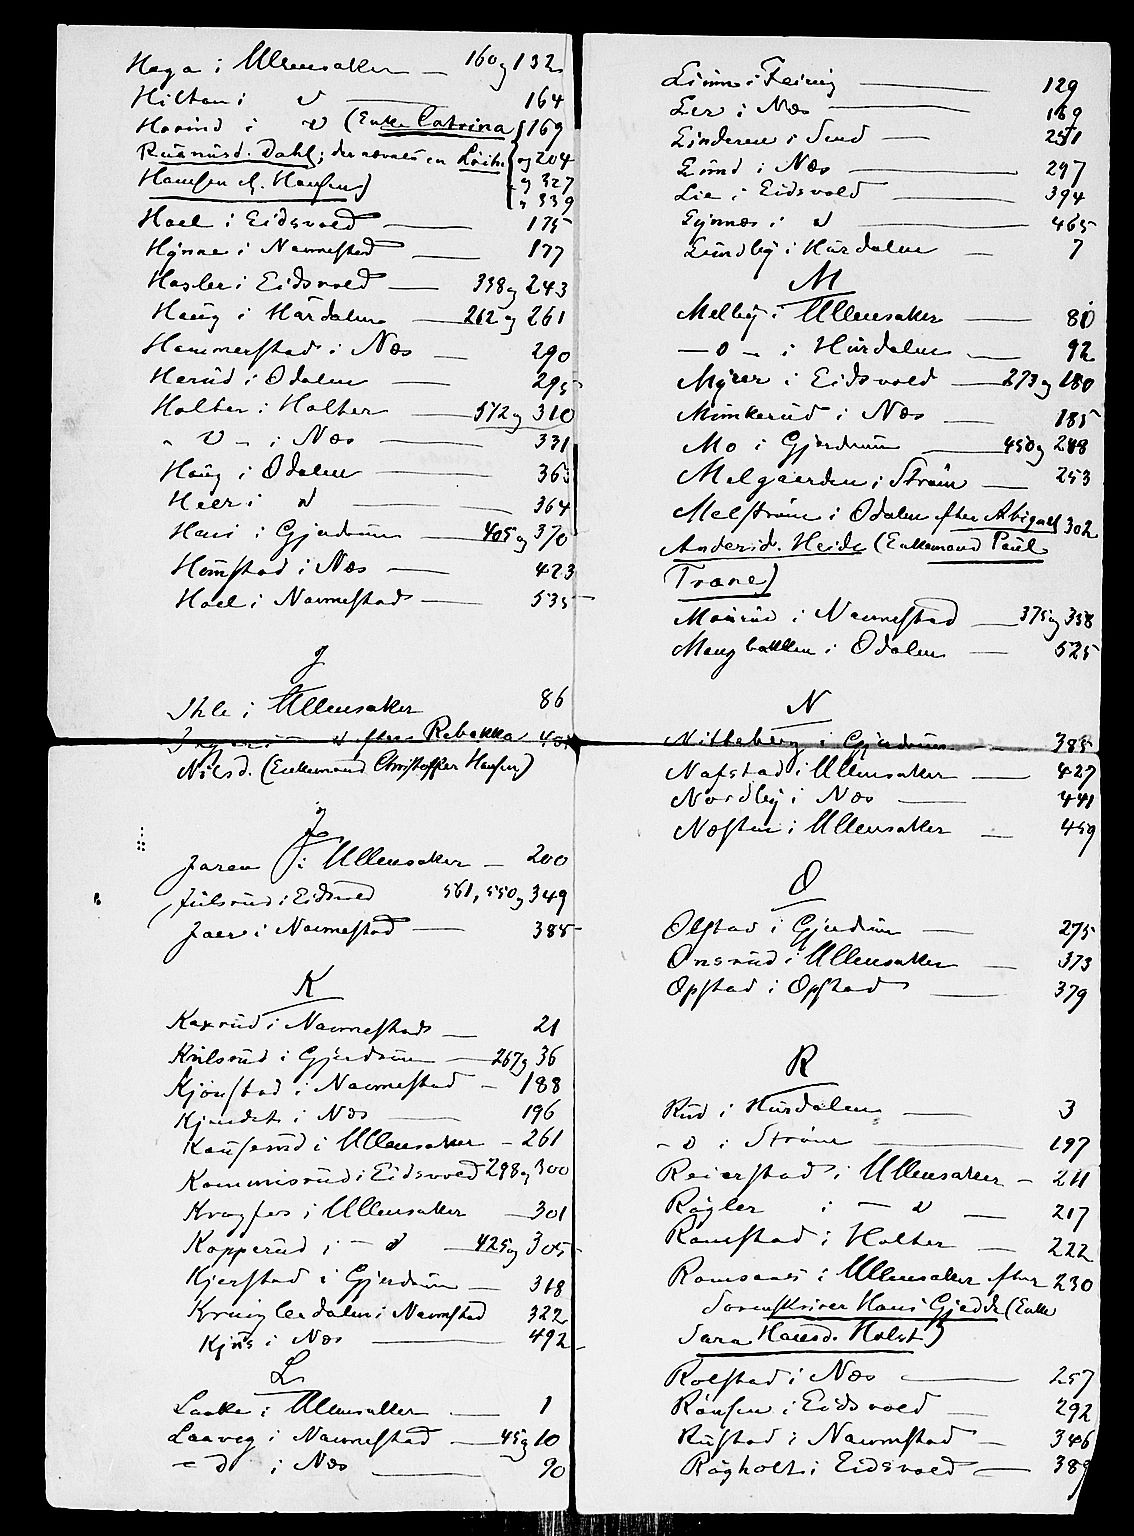 Haga i Ullensaker — 160 og 132
Hilton i d — 164
Hovind i d (Enke Catrina 169
Rasmusd. Dahl; der nævnes en Løitn. og 204
Hansen Hansen) og 327
" 339
Hoel i Eidsvold — 175
Hynne i Nannestad — 177
Hasler i Eidsvold — 338 og 243
Haug i Hurdalen — 262 og 261
Hammerstad i Næs — 290
Herud i Odalen — 295
Holter i Holter — 572 og 310
" d — i Næs — 331
Haug i Odalen — 363
Heer i d — 364
Hani i Gjerdrum — 405 og 370
Homstad i Næs — 423
Hoel i Nannestad — 535
I
Ihle i Ullensaker 86
d efter Rebekka
Nilsd. (Enkemand Christoffer Hansen)
J
Jaren i Ullensaker — 200
Julsrud i Eidsvold 561, 550 og 349
Jaer i Nannestad — 385
K
Kaxrud i Nannestad — 21
Kulsrud i Gjerdrum — 267 og 36
Kjønstad i Nannestad — 188
Kjendet i Næs — 196
Kauserud i Ullensaker — 261
Kommisrud i Eidsvold 298 og 300
Kragfos i Ullensaker — 301
Kopperud i — d — 425 og 305
Kjerstad i Gjerdrum — 318
Kringlerdalen i Nannestad 322
Kjos i Næs — 492
L
Laake i Ullensaker — 1
Laaveg i Nannestad — 45 og 10
— d i Næs — 90
Linn i Feiring — 129
Ler i Næs — 169
Linderen i Sand — 251
Lund i Næs — 297
Lie i Eidsvold — 394
Lynnæs i d — 465
Lundby i Hurdalen — 7
M
Melby i Ullensaker — 80
— d — i Hurdalen — 92
Myrer i Eidsvold — 273 og 180
Munkerud i Næs — 185
Mo i Gjerdrum — 450 og 248
Melgaarden i Strøm — 253
Melstrøm i Odalen efter Abigael 302
Andersd. Heide (Enkemand Paul
Trane)
Maurud i Nannestad — 375 og 338
Mangbakken i Odalen — 525
N
Nitteberg i Gjerdrum — 385
Nafstad i Ullensaker — 427
Nordby i Næs — 441
Næsten i Ullensaker — 459
O
Olstad i Gjerdrum — 275
Onsrud i Ullensaker — 373
Opstad i Opstad — 379
R
Rud i Hurdalen — 3
— d i Strøm — 197
Reierstad i Ullensaker — 211
Røgler i — d — 217
Ramstad i Holter — 222
Ramsaas i Ullensaker efter 230
Sorenskriver Hans Gjedde (Enke
Sara Hansd. Holst)
Rolstad i Næs — 257
Rausen i Eidsvold — 292
Rustad i Nannestad — 346
Røgholt i Eidsvold — 389